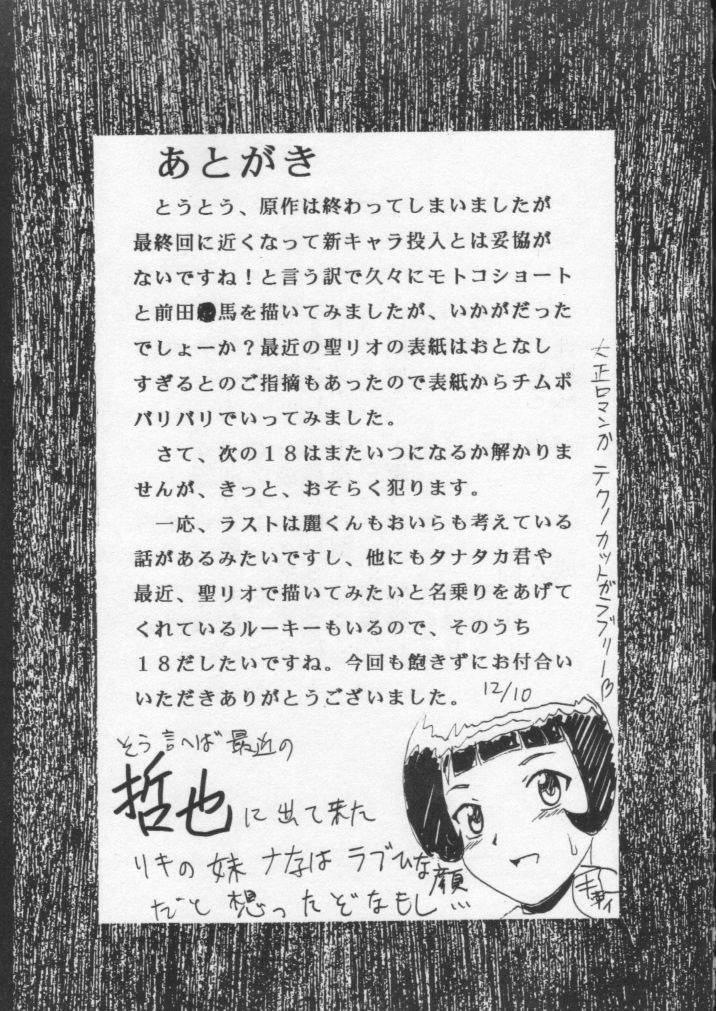 あとがき
とうとう、原作は終わってしまいましたが
最終回に近くなって新キャラ投入とは妥協が
ないですね！と言う訳で久々にモトコショート
と前田●馬を描いてみましたが、いかがだった
でしょーか？最近の聖リオの表紙はおとなし
すぎるとのご指摘もあったので表紙からチムポ
バリバリでいってみました。
さて、次の１８はまたいつになるか解かりま
せんが、きっと、おそらく犯ります。
一応、ラストは麗くんもおいらも考えている
話があるみたいですし、他にもタナタカ君や
最近、聖リオで描いてみたいと名乗りをあげて
くれているルーキーもいるので、そのうち
１８だしたいですね。今回も飽きずにお付合い
いただきありがとうございました。 12/10
大正ロマンガ テクノカットがラブリー♡
そう言へば最近の
哲也に出て来た
リキの妹ナナはラブひな顔
だと想ったぞなもし